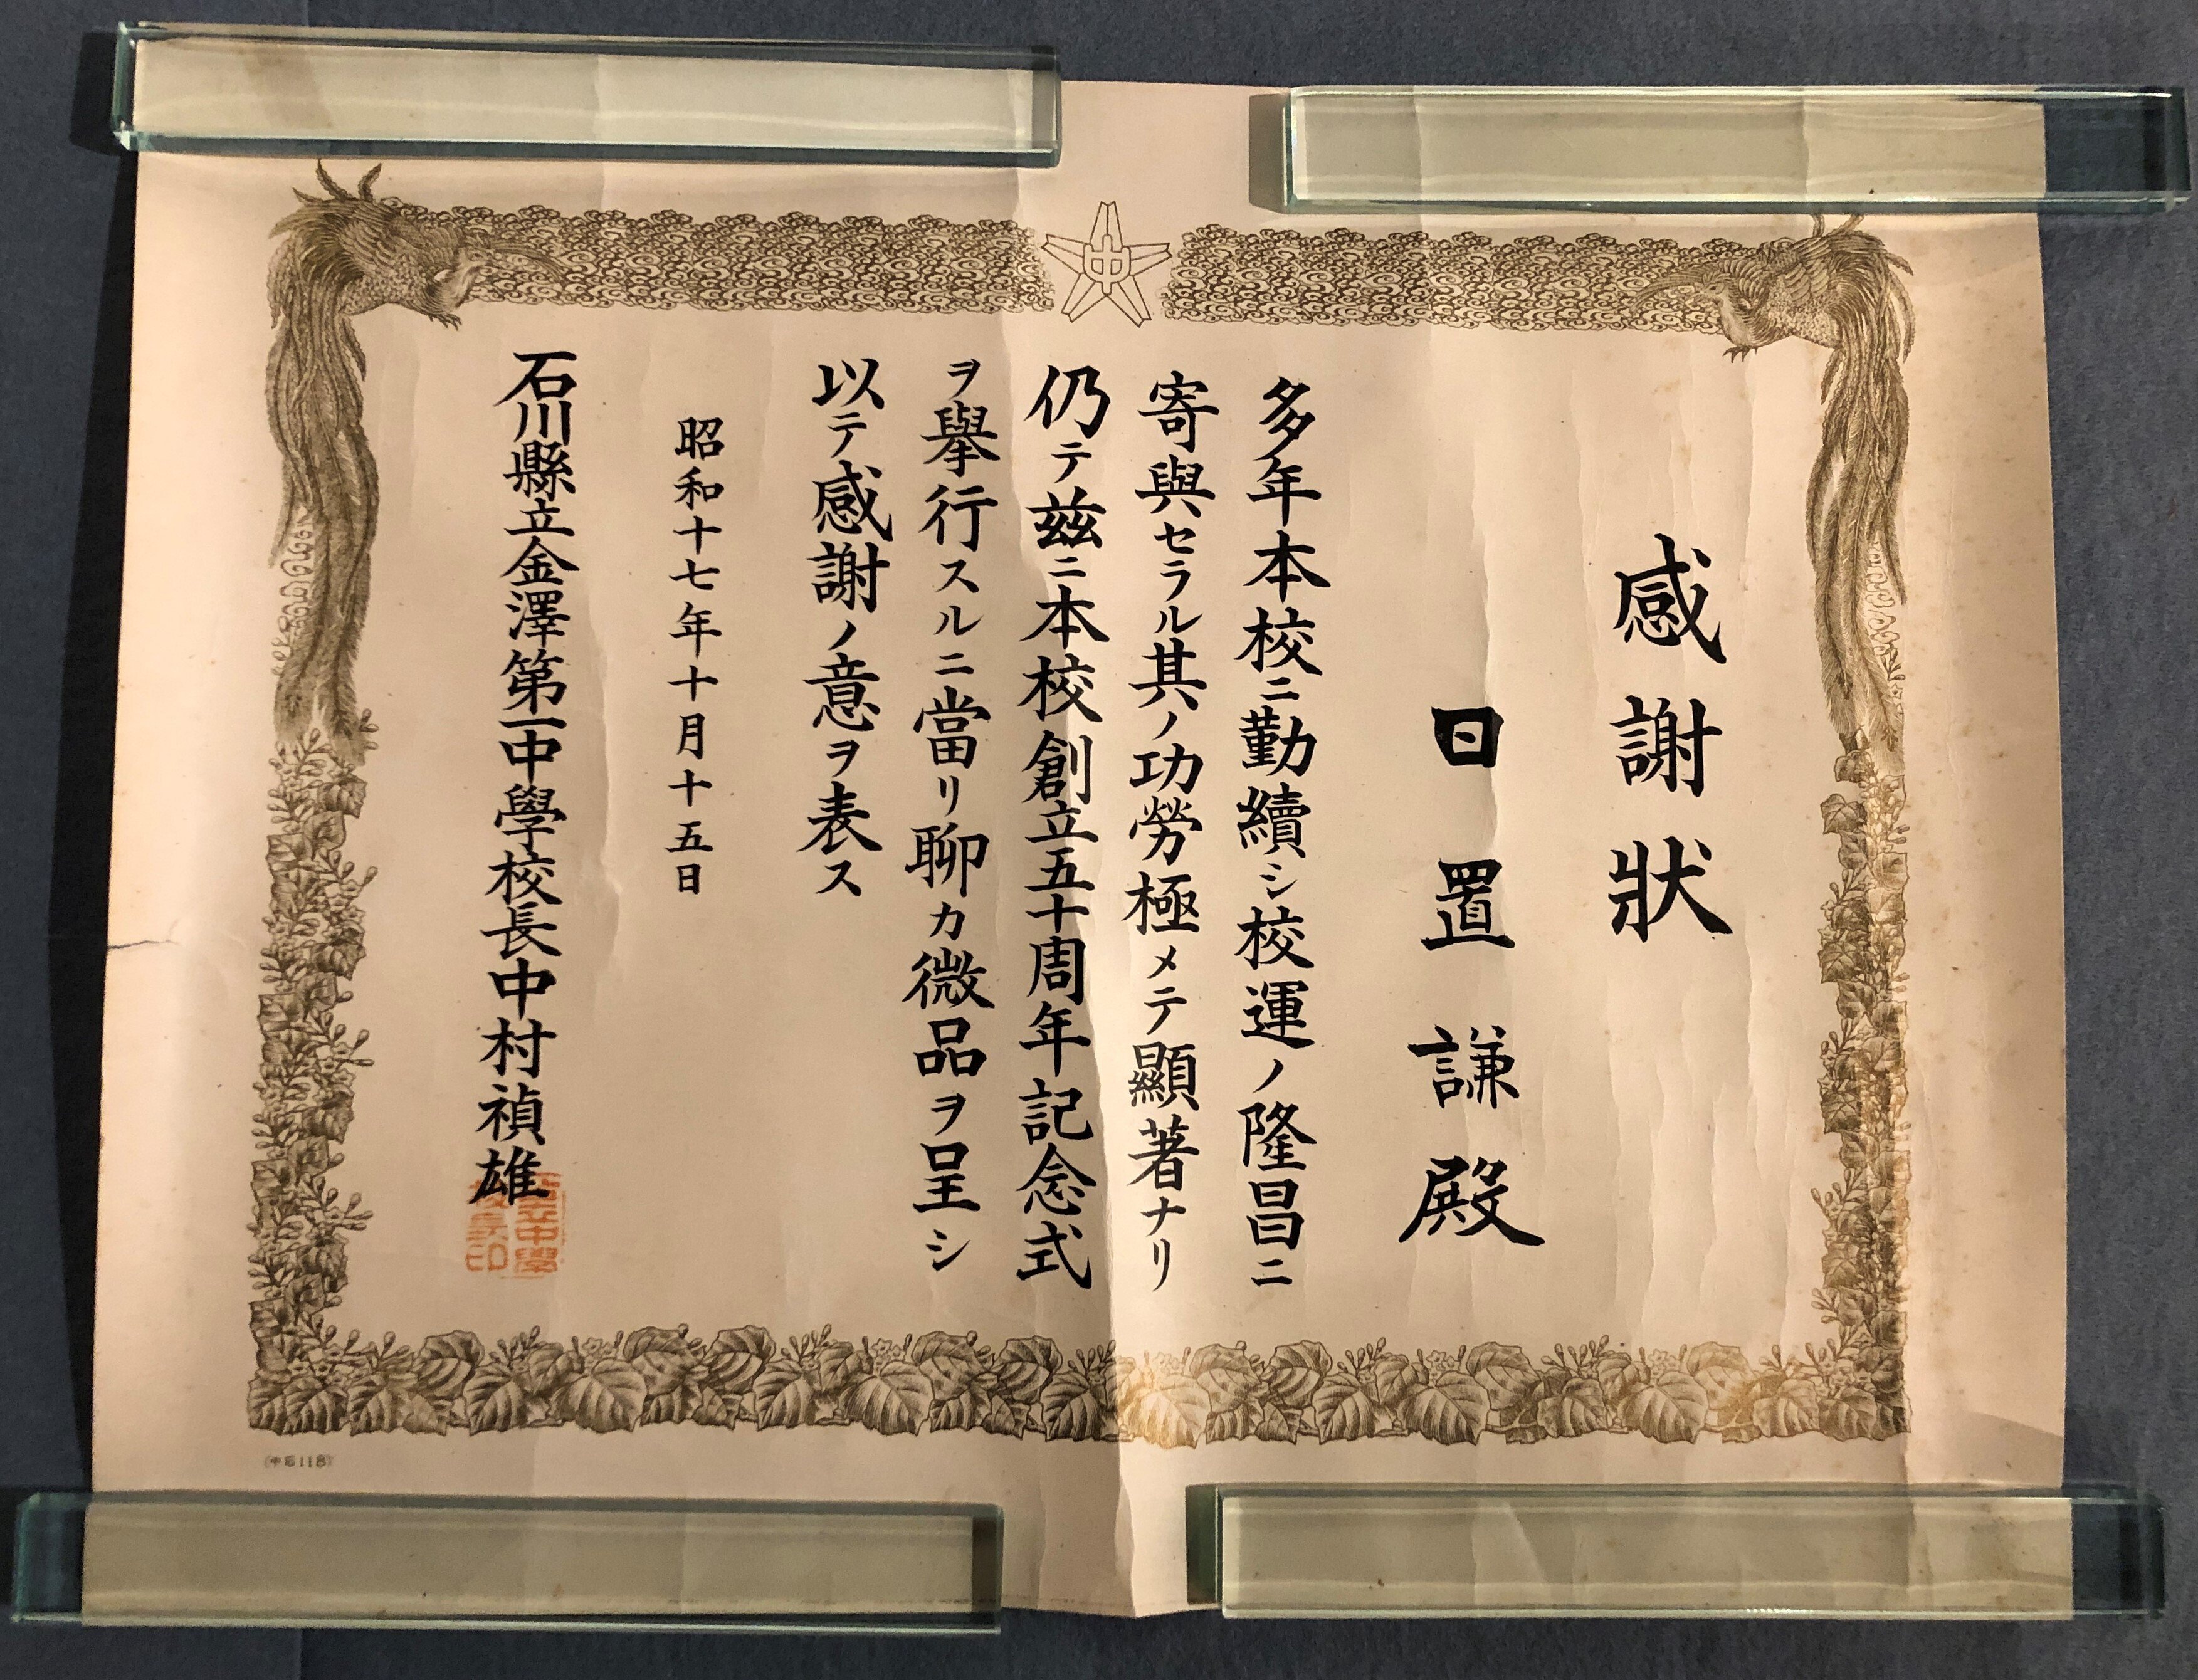 感謝狀
日置謙殿
多年本校ニ勤續シ校運ノ隆昌ニ
寄與セラル其ノ功勞極メテ顯著ナリ
仍テ茲ニ本校創立五十周年記念式
ヲ擧行スルニ當リ聊カ微品ヲ呈シ
以テ感謝ノ意ヲ表ス
昭和十七年十月十五日
石川縣立金澤第一中學校長中村禎雄
中